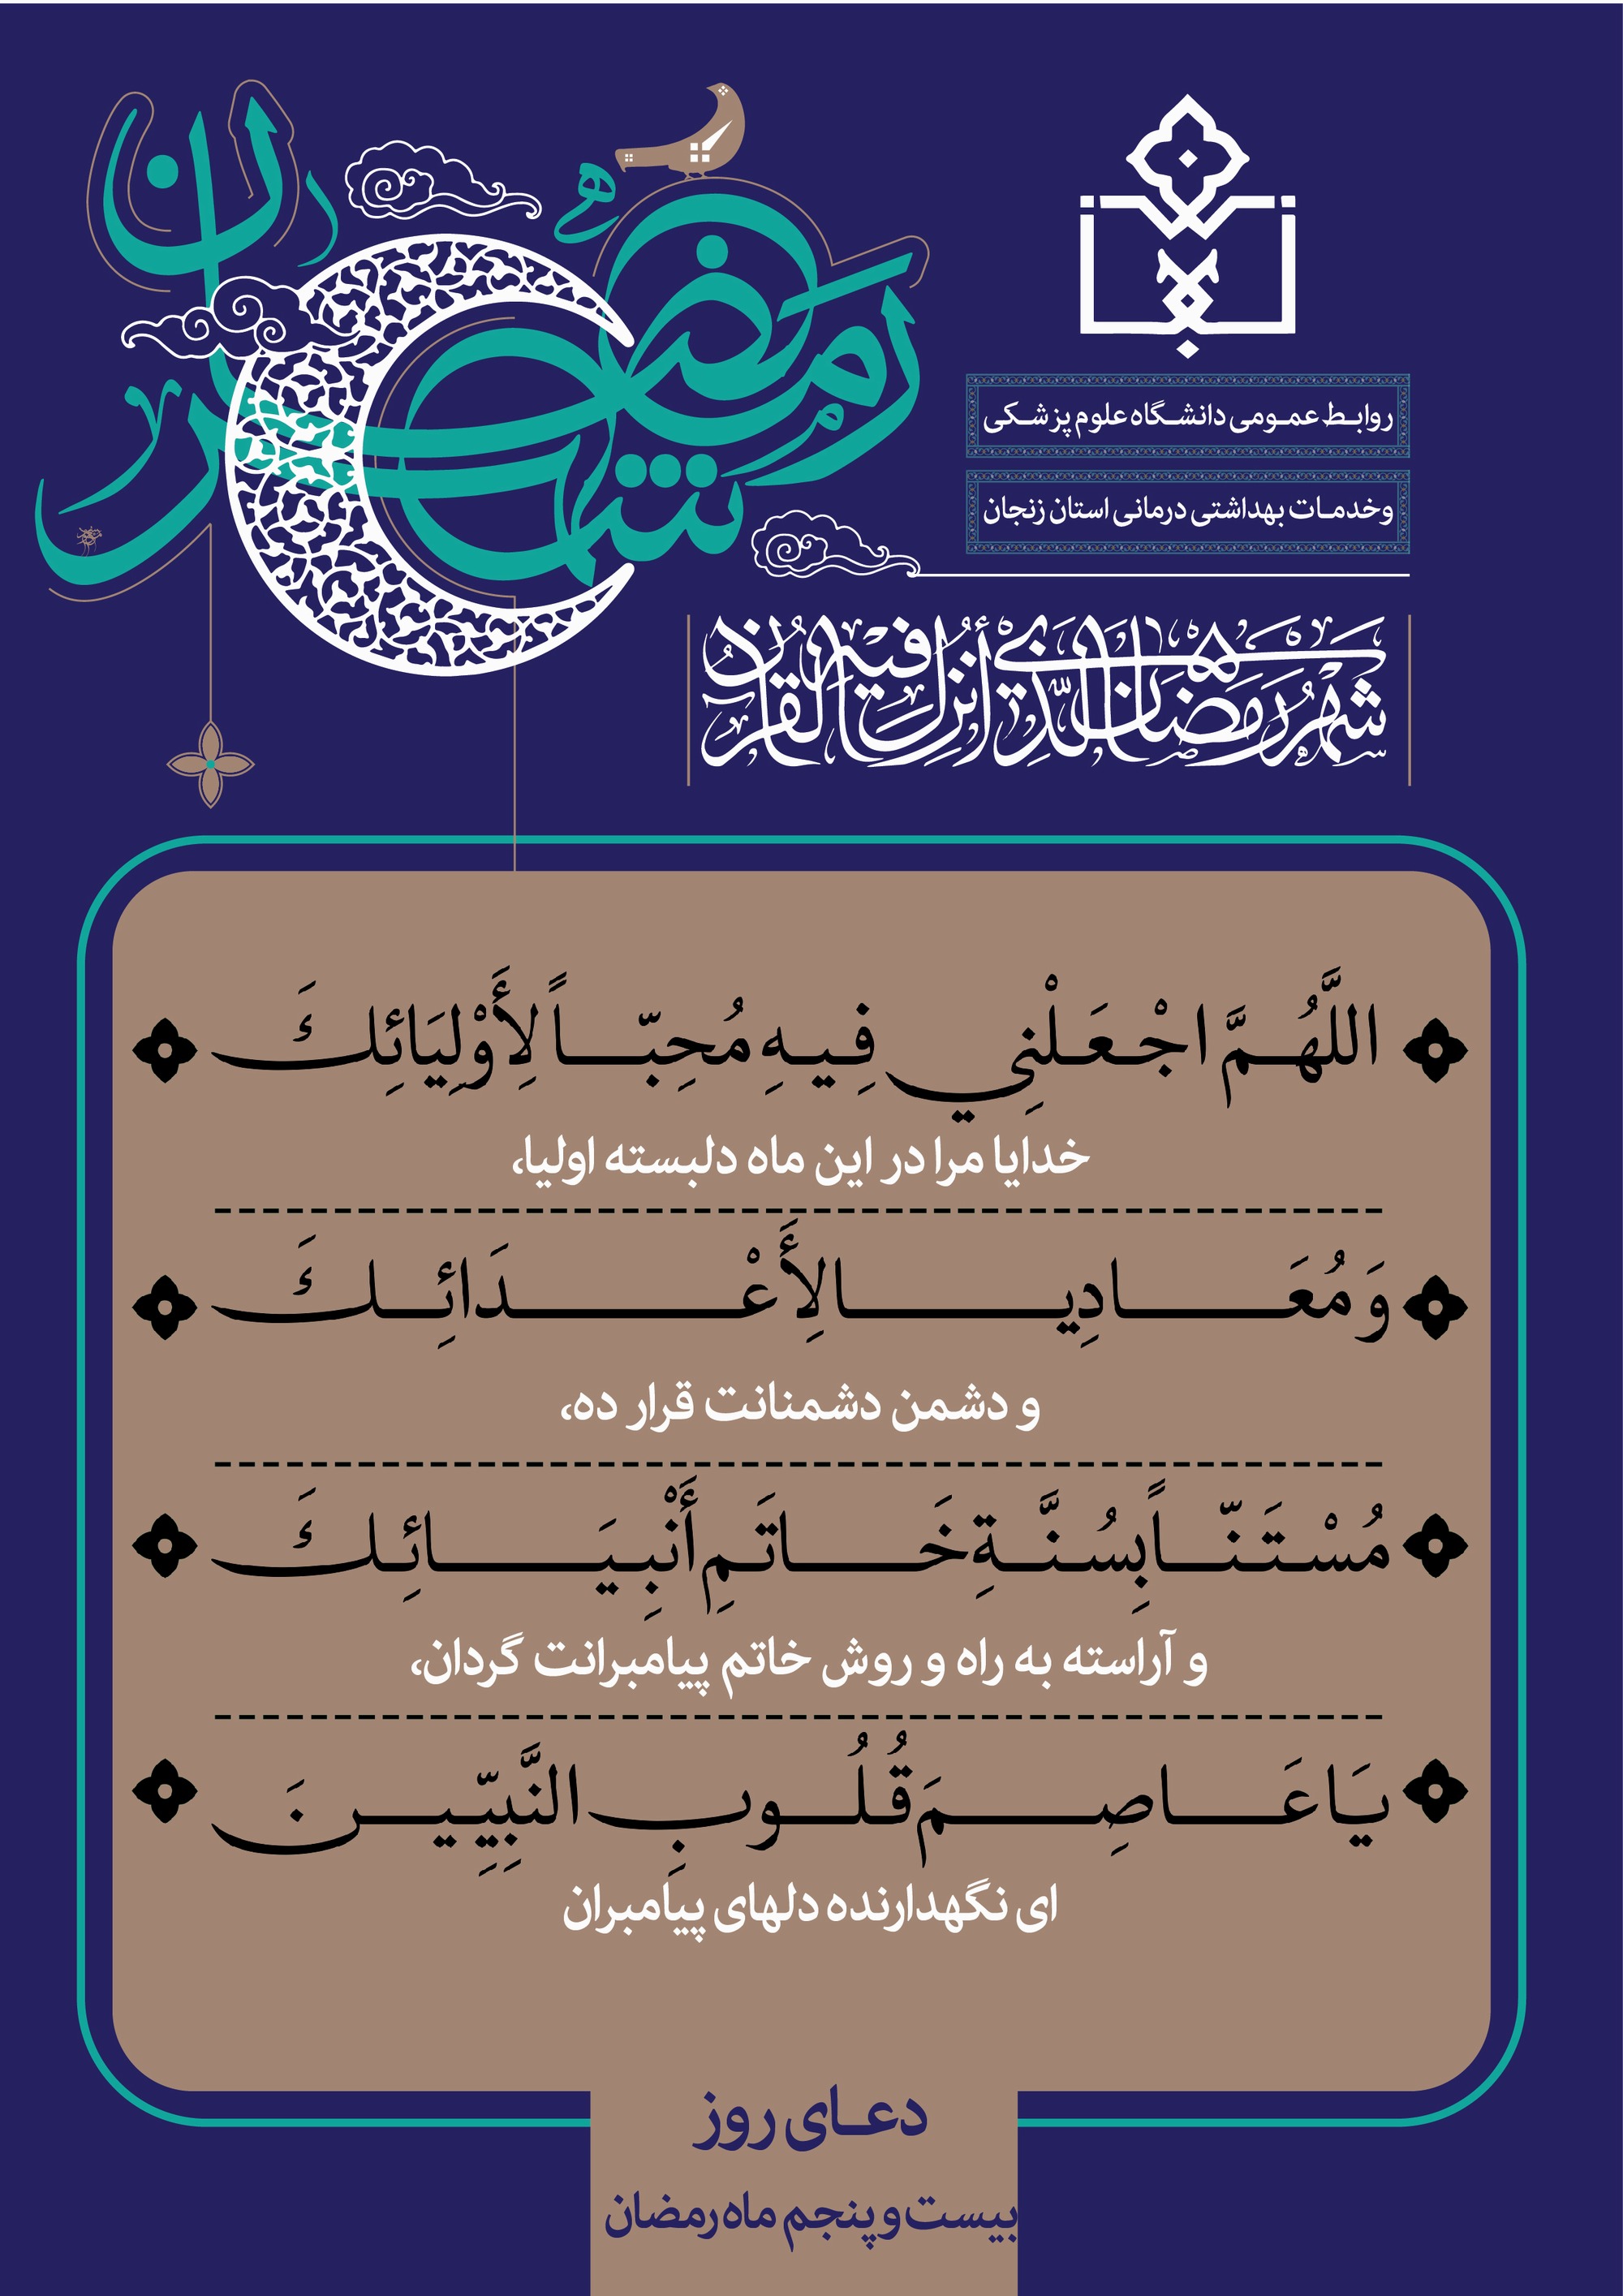 شهر رمضان
روابط عمومی دانشگاه علوم پزشکی
وخدمات بهداشتی درمانی استان زنجان
شهر رمضان الذي أنزل فيه القرآن
اللَّهُمَّ اجْعَلْنِي فِيهِ مُحِبّاً لِأَوْلِيَائِكَ
خدایا مرا در این ماه دلبسته اولیا،
وَ مُعَادِيا لِأَعْدَائِكَ
و دشمن دشمنانت قرار ده،
مُسْتَنّاً بِسُنَّةِ خَاتَمِ أَنْبِيَائِكَ
و آراسته به راه و روش خاتم پیامبرانت گردان،
يَا عَاصِمَ قُلُوبِ النَّبِيِّينَ
ای نگهدارنده دلهای پیامبران
دعای روز
بیست و پنجم ماه رمضان